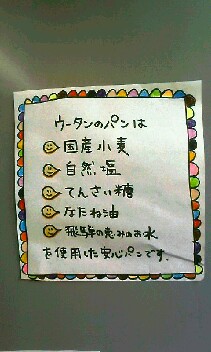 ウータンのパンは
国産小麦
自然塩
てんさい糖
なたね油
飛騨の恵みのお水
を使用した安心パンです。